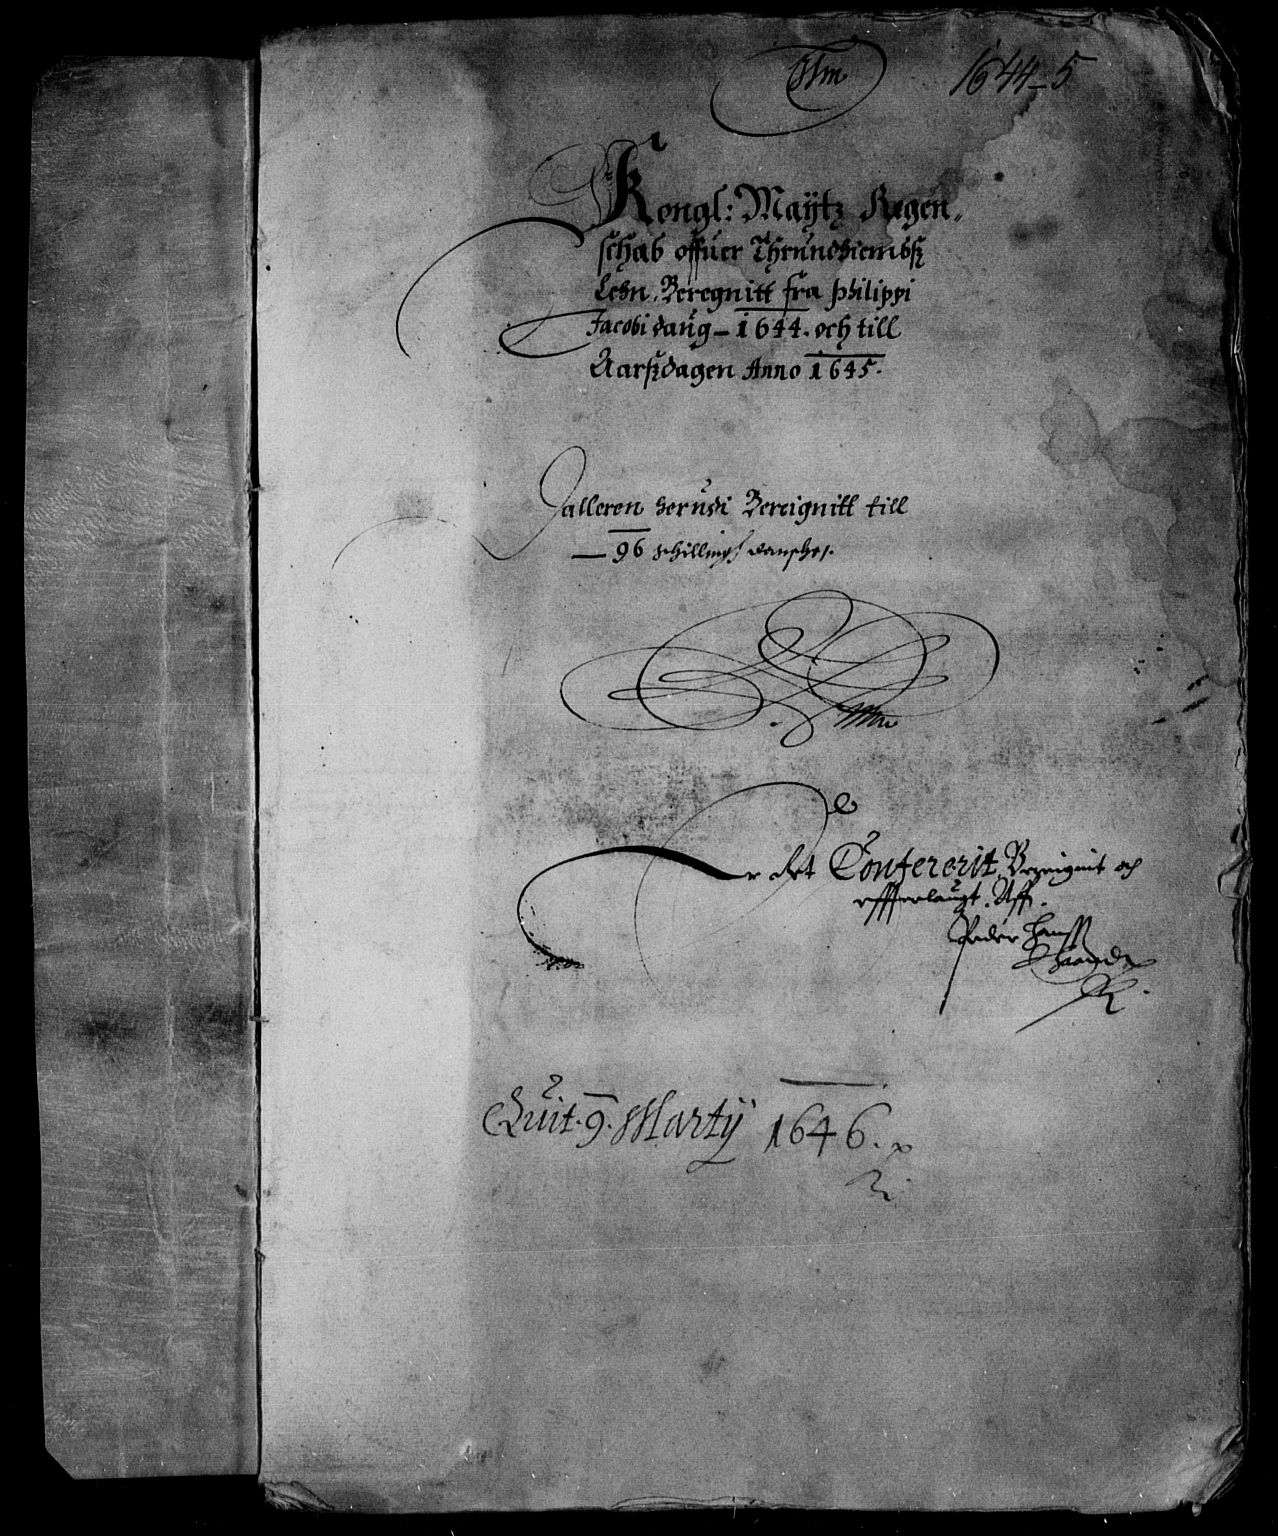 1644-5
Kongl: Maÿtz Regen,
schab offuer Thrundhiembsz
Lehn, Beregnitt fra Philippi
Jacobi daug - 1644. och till
Aarszdagen Anno 1645.
Dalleren herudi Bereignitt till
— 96 schilling danshe.
Er det Confererit, Bereignit och
offuerlaugt. Aff.
Peder Hanss
Quit. 9. Martÿ 1646.